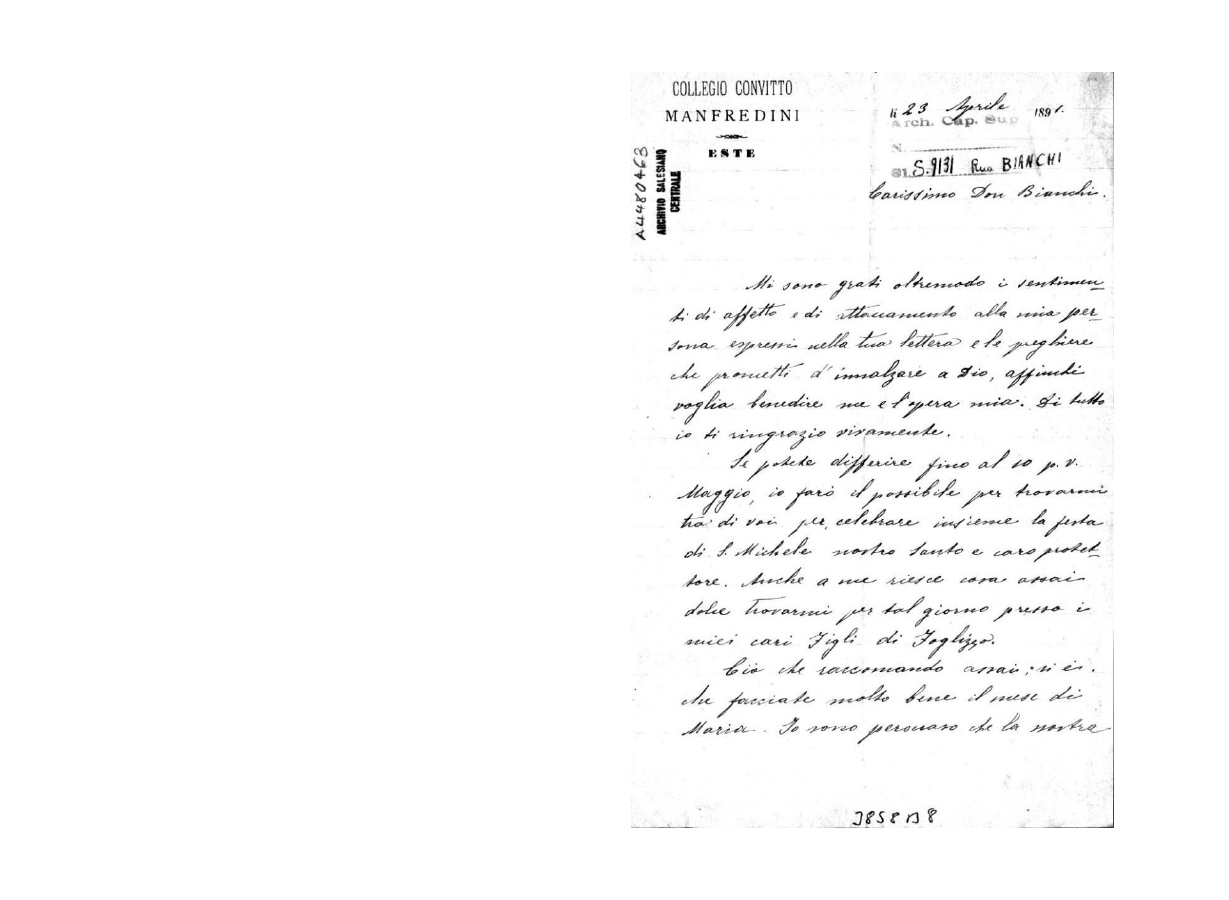 COLLEGIO CONVITTO
MANFREDINI
ESTE
li 23 Aprile 1891.
Arch. Cap. Sup
N.
S.9131 Rua BIANCHI
A4480463
ARCHIVIO SALESIANO
CENTRALE
Carissimo Don Bianchi.
Mi sono grati oltremodo i sentimen-
ti di affetto e di attaccamento alla mia per-
sona espressi nella tua lettera e le preghiere
che prometti d'innalzare a Dio, affinchè
voglia benedire me e l'opera mia. Di tutto
io ti ringrazio vivamente.
Se potete differire fino al 10 p. v.
Maggio, io farò il possibile per trovarmi
tra di voi per celebrare insieme la festa
di S. Michele nostro Santo e caro protet-
tore. Anche a me riesce cosa assai
dolce trovarmi per tal giorno presso i
miei cari Figli di Foglizzo.
Ciò che raccomando assai si è
che facciate molto bene il mese di
Maria. Io sono persuaso che la nostra
3858 B 8